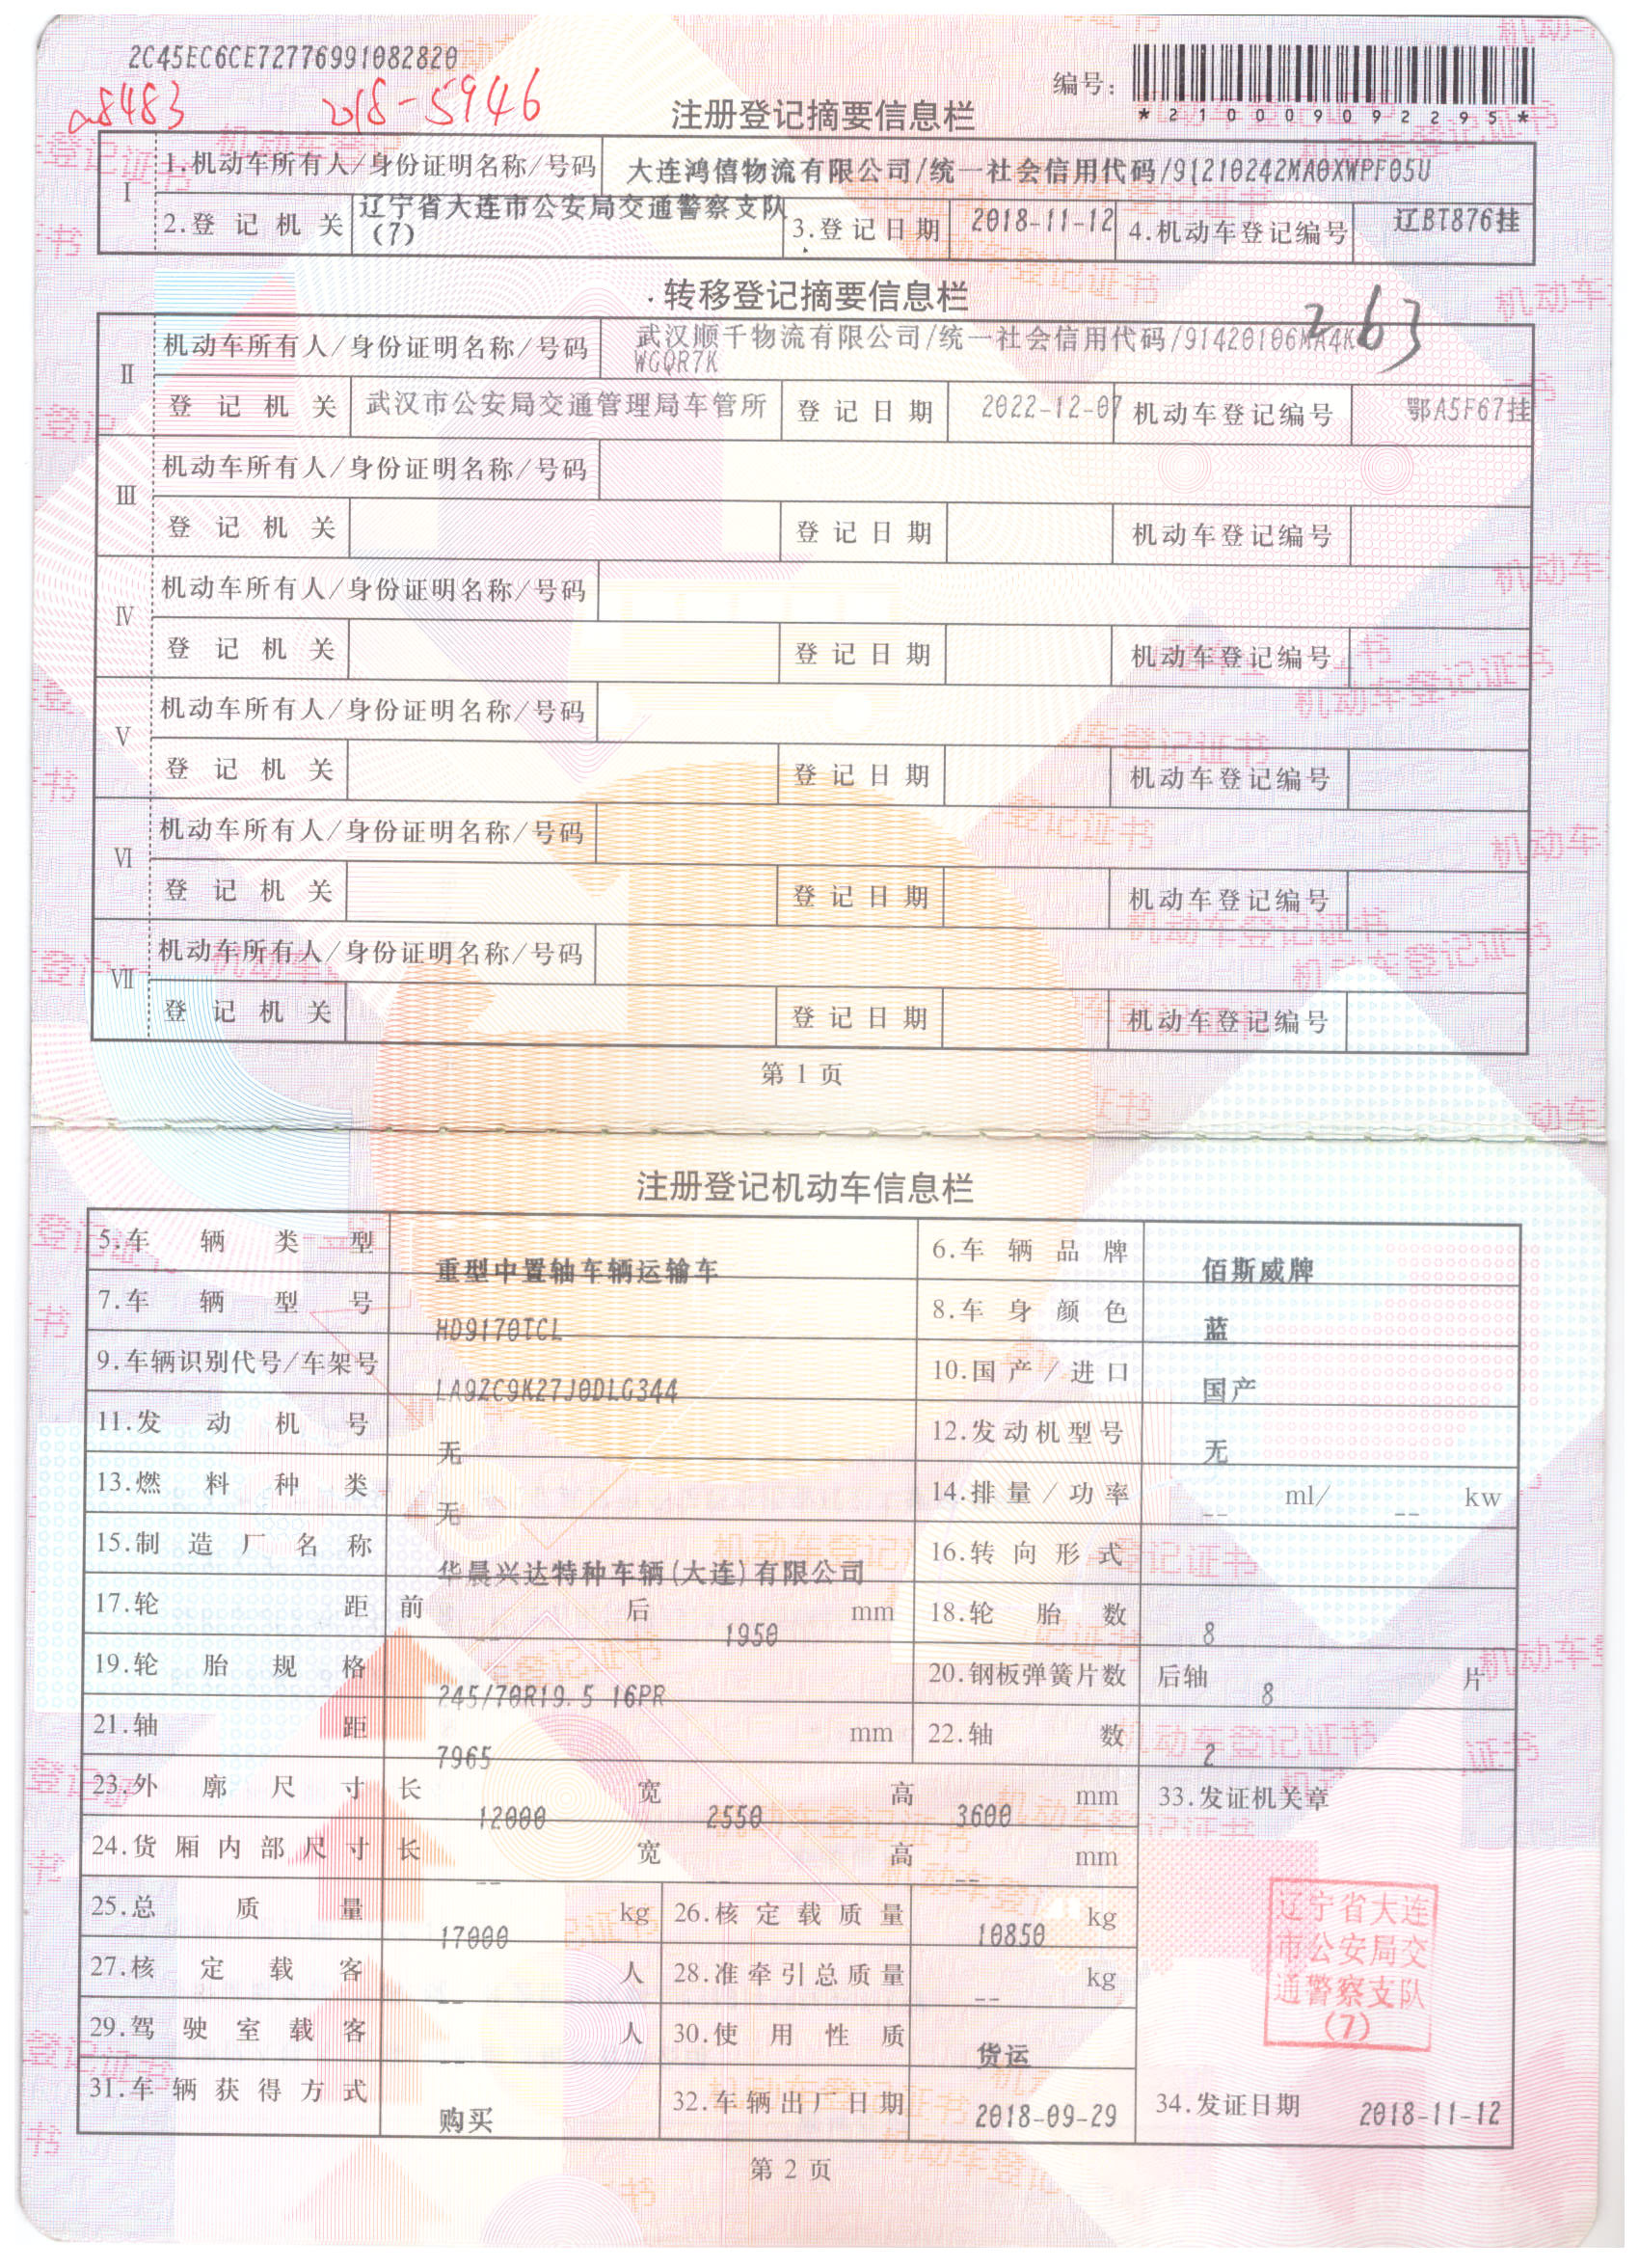 2C45EC6CE72776991082820
a8483 2018-5946
编号:
*210009092295*
注册登记摘要信息栏
I 1.机动车所有人/身份证明名称/号码 大连鸿僖物流有限公司/统一社会信用代码/91210242MA0XWPF05U
2.登记机关 辽宁省大连市公安局交通警察支队
(7)
3.登记日期 2018-11-12 4.机动车登记编号 辽BT876挂
转移登记摘要信息栏
263
II 机动车所有人/身份证明名称/号码 武汉顺千物流有限公司/统一社会信用代码/91420106MA4K
WGQR7K
登记机关 武汉市公安局交通管理局车管所 登记日期 2022-12-07 机动车登记编号 鄂A5F67挂
III 机动车所有人/身份证明名称/号码
登记机关 登记日期 机动车登记编号
IV 机动车所有人/身份证明名称/号码
登记机关 登记日期 机动车登记编号
V 机动车所有人/身份证明名称/号码
登记机关 登记日期 机动车登记编号
VI 机动车所有人/身份证明名称/号码
登记机关 登记日期 机动车登记编号
VII 机动车所有人/身份证明名称/号码
登记机关 登记日期 机动车登记编号
第 1 页
注册登记机动车信息栏
5.车辆类型 重型中置轴车辆运输车 6.车辆品牌 佰斯威牌
7.车辆型号 HD9170TCL 8.车身颜色 蓝
9.车辆识别代号/车架号 LA9ZC9K27J0DLG344 10.国产/进口 国产
11.发动机号 无 12.发动机型号 无
13.燃料种类 无 14.排量/功率 -- ml/ -- kw
15.制造厂名称 华晨兴达特种车辆(大连)有限公司 16.转向形式
17.轮距 前 -- 后 1950 mm 18.轮胎数 8
19.轮胎规格 245/70R19.5 16PR 20.钢板弹簧片数 后轴 8 片
21.轴距 7965 mm 22.轴数 2
23.外廓尺寸 长 12000 宽 2550 高 3600 mm 33.发证机关章
24.货厢内部尺寸 长 -- 宽 -- 高 -- mm
25.总质量 17000 kg 26.核定载质量 10850 kg
27.核定载客 -- 人 28.准牵引总质量 -- kg
29.驾驶室载客 -- 人 30.使用性质 货运
辽宁省大连
市公安局交
通警察支队
(7)
31.车辆获得方式 购买 32.车辆出厂日期 2018-09-29 34.发证日期 2018-11-12
第 2 页